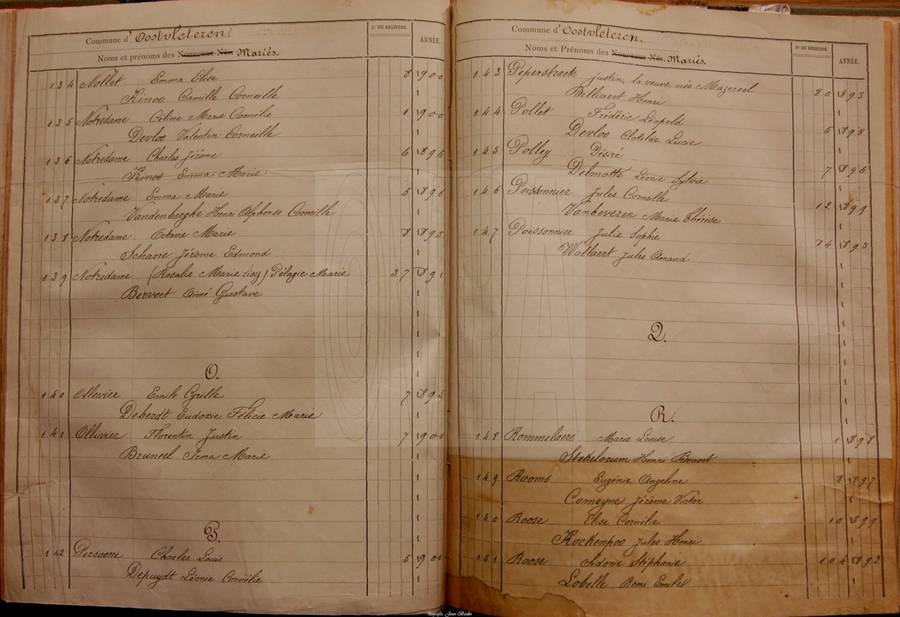 Commune d'Oostvleteren
Nº DU REGISTRE
ANNÉE.
Noms et prénoms des Nouveaux-Nés. Mariés.
134 Nollet Emma Elise 8 1900
Kinoo Camille Corneille
135 Notredame Celina Marie Cornélie 1 1900
Devloo Valentin Corneille
136 Notredame Charles Jérôme 6 1896
Kinoo Emma Marie
137 Notredame Emma Marie 5 1896
Vandenberghe Henri Alphonse Cornille
138 Notredame Octavie Marie 8 1895
Schaeve Jérôme Edmond
139 Notredame (Rosalie Marie Pélagie Marie 27 1891
Bervoet Aimé Gustave
O.
140 Ollevier Emile Cyrille 7 1895
Deberdt Eudoxie Félicie Marie
141 Ollivier Florentin Justin 7 1900
Bruneel Irma Marie
P.
142 Persoone Charles Louis 5 1900
Depuydt Léonie Cornélie
Commune d'Oostvleteren.
Nº DU REGISTRE
ANNÉE.
Noms et Prénoms des Nouveaux-Nés. Mariés.
143 Peperstraete Justin, la veuve née Mazereel 20 1893
Billiaert Henri
144 Pollet Frédéric Léopold 6 1898
Devloo Clotilde Lucie
145 Polley Désiré 7 1896
Delmotte Léonie Sylvie
146 Poissonnier Jules Cornille 12 1899
Vanbeveren Marie Thérèse
147 Poissonnier Julie Sophie 24 1893
Wallaert Jules Amand
Q.
R.
148 Rommelaere Marie Louise 1 1898
Stekelorum Henri Benoit
149 Rooms Eugénie Angeline 8 1897
Comeyne Jérôme Victor
150 Roose Elise Cornélie 10 1899
Kockenpoo Jules Henri
151 Roose Sidonie Stéphanie 1893
Lobelle Remi Emile